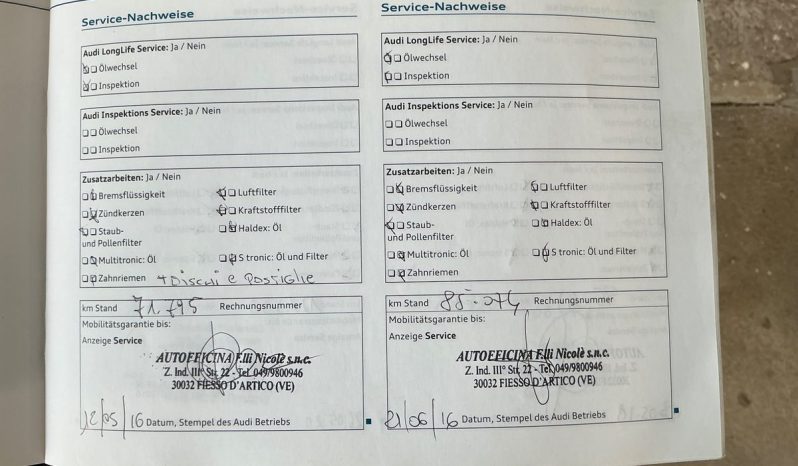 Service-Nachweise
Audi LongLife Service: Ja / Nein
Ölwechsel
Inspektion
Audi Inspektions Service: Ja / Nein
Ölwechsel
Inspektion
Zusatzarbeiten: Ja / Nein
Bremsflüssigkeit Luftfilter
Zündkerzen Kraftstofffilter
Staub- Haldex: Öl
und Pollenfilter
Multitronic: Öl S tronic: Öl und Filter
Zahnriemen + Dischi e
km Stand 71.795 Rechnungsnummer
Mobilitätsgarantie bis:
Anzeige Service
AUTOFFICINA F.lli Nicolè s.n.c.
Z. Ind. IIIª Str. 22 - Tel. 049/9800946
30032 FIESSO D'ARTICO (VE)
12/05/16 Datum, Stempel des Audi Betriebs
Service-Nachweise
Audi LongLife Service: Ja / Nein
Ölwechsel
Inspektion
Audi Inspektions Service: Ja / Nein
Ölwechsel
Inspektion
Zusatzarbeiten: Ja / Nein
Bremsflüssigkeit Luftfilter
Zündkerzen Kraftstofffilter
Staub- Haldex: Öl
und Pollenfilter
Multitronic: Öl S tronic: Öl und Filter
Zahnriemen
km Stand 85.074 Rechnungsnummer
Mobilitätsgarantie bis:
Anzeige Service
AUTOFFICINA F.lli Nicolè s.n.c.
Z. Ind. IIIª Str. 22 - Tel. 049/9800946
30032 FIESSO D'ARTICO (VE)
21/06/16 Datum, Stempel des Audi Betriebs